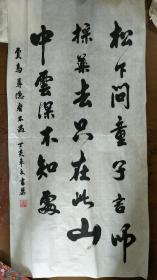 松下问童子言师
採药去只在此山
中雲深不知處
贾島尋隐者不遇 丁亥年